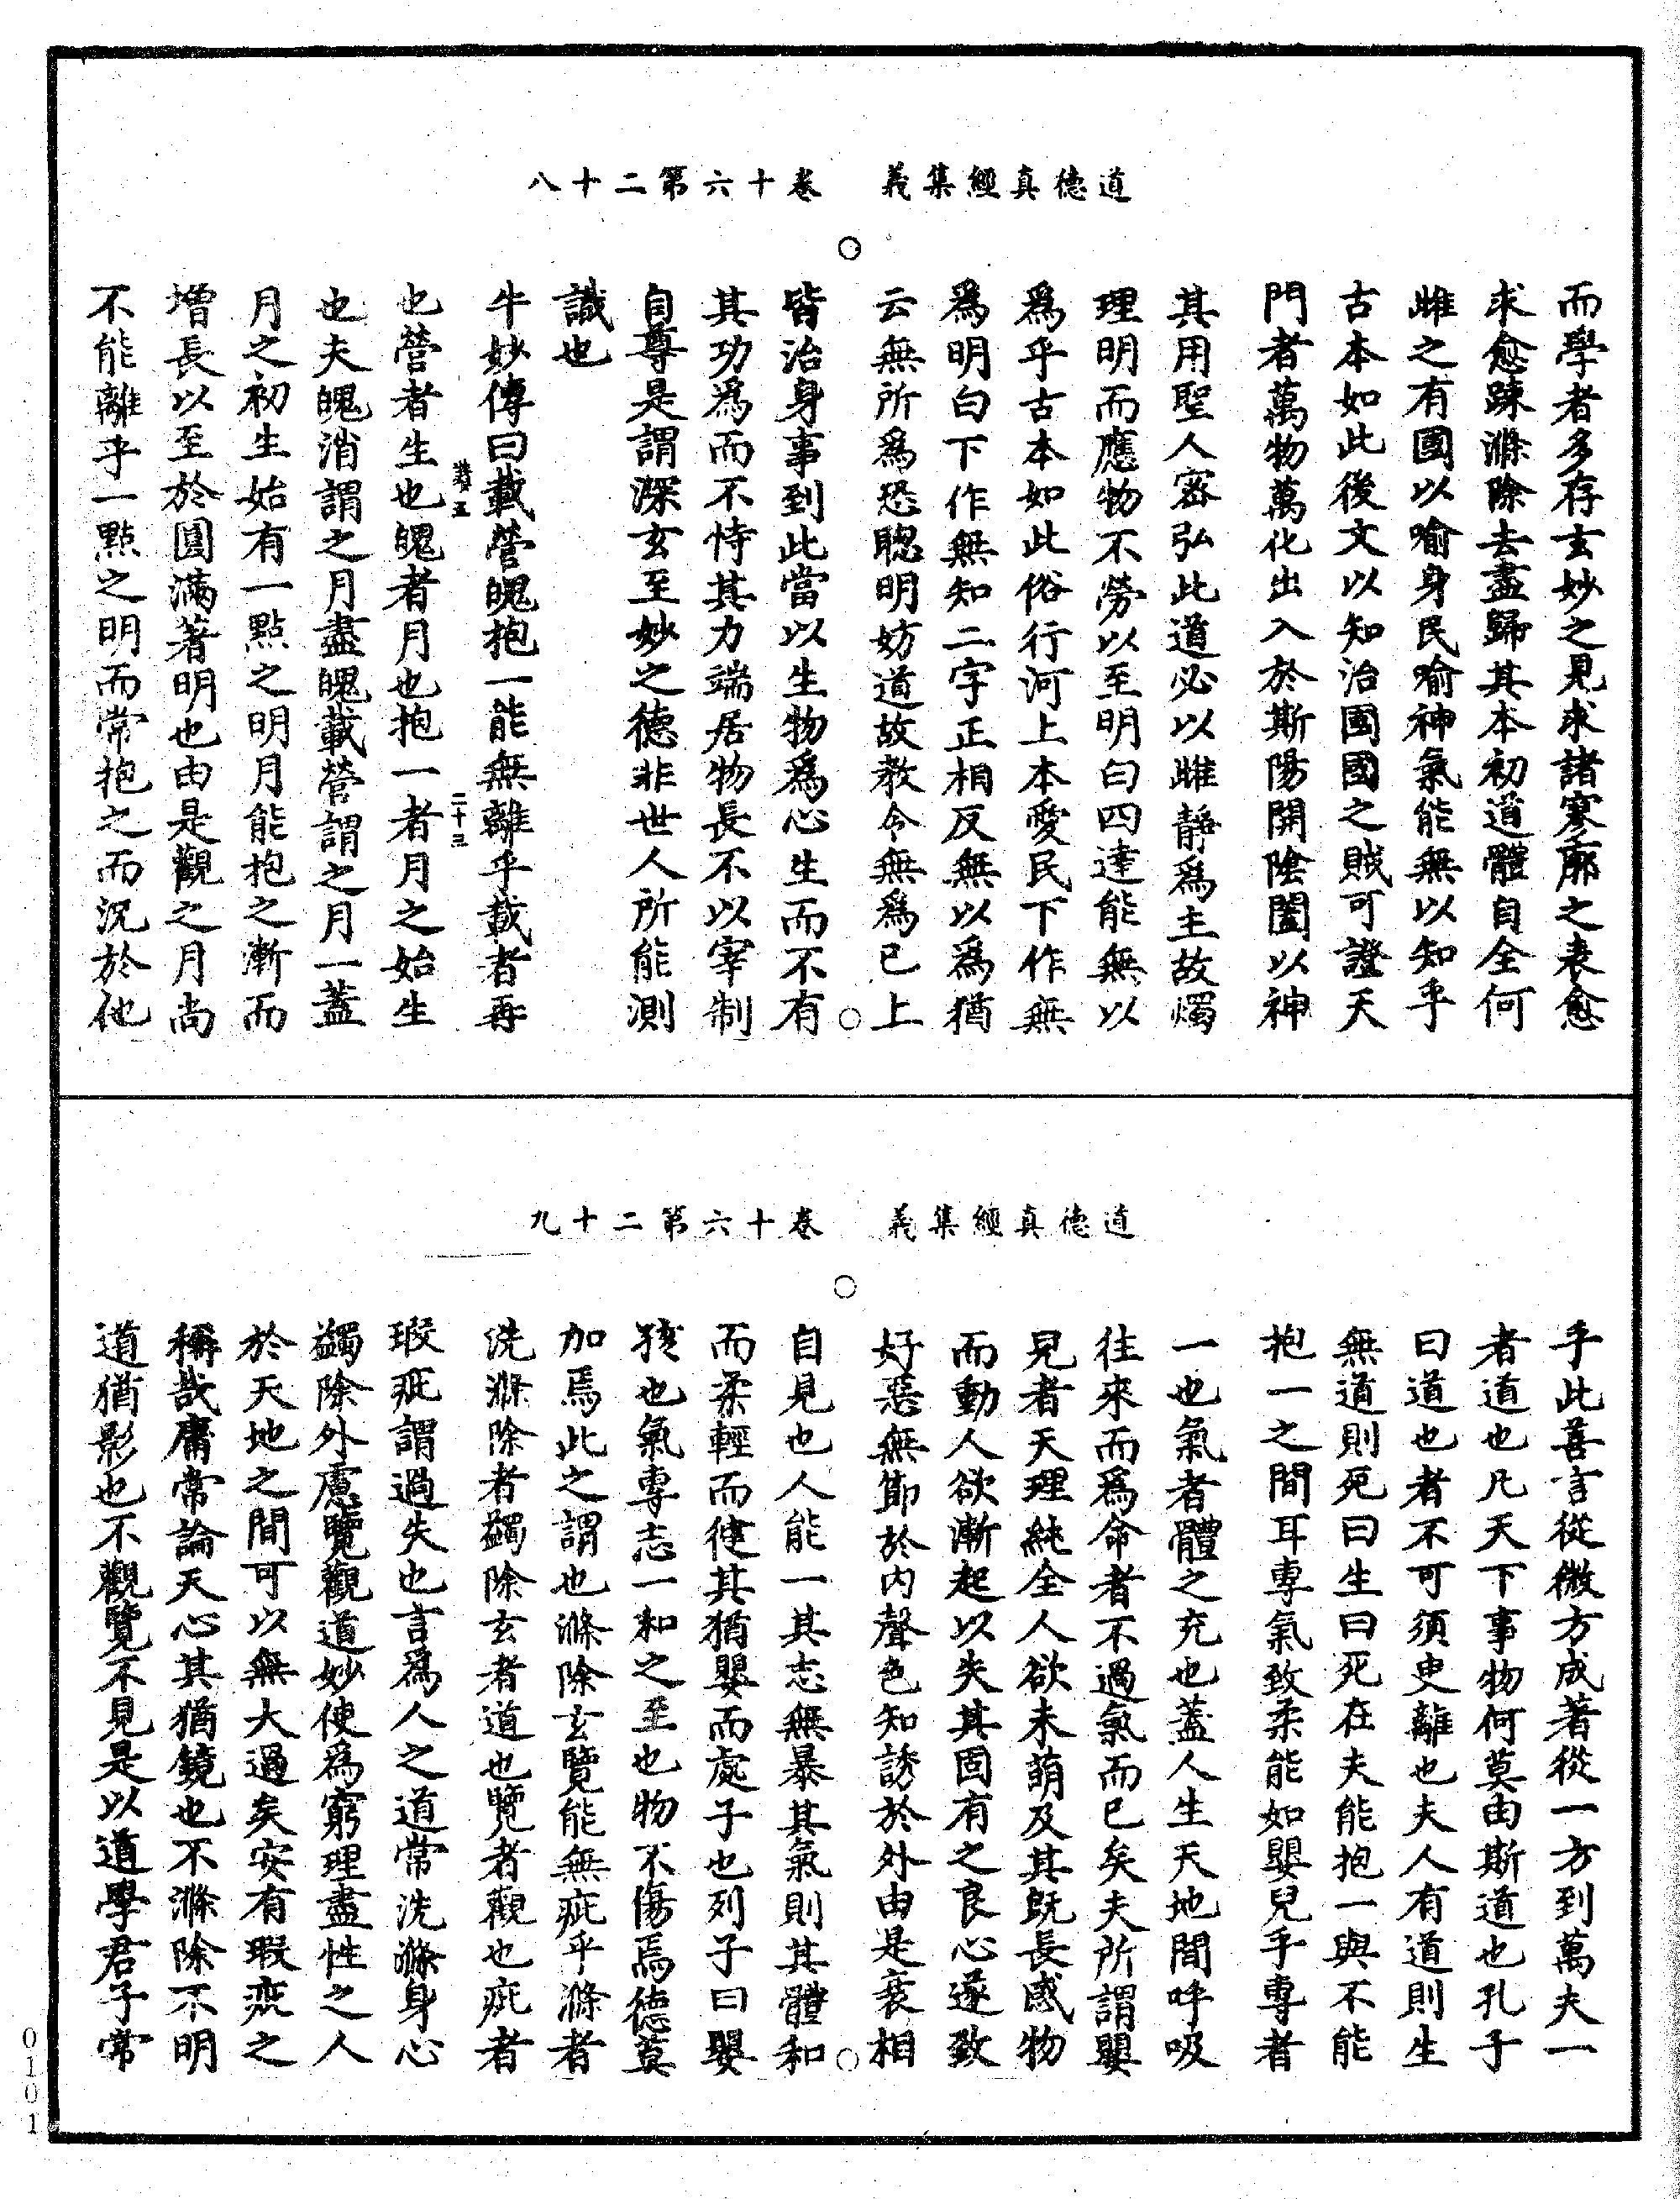 道德真經集義　卷十六第二十八
而學者多存玄妙之見求諸寥廓之表愈
求愈疎滌除去盡歸其本初道體自全何
雌之有國以喻身民喻神氣能無以知乎
古本如此後文以知治國國之賊可證天
門者萬物萬化出入於斯陽開陰闔以神
其用聖人密弘此道必以雌靜爲主故燭
理明而應物不勞以至明白四達能無以
爲乎古本如此俗行河上本愛民下作無
爲明白下作無知二字正相反無以爲猶
云無所爲恐聰明妨道故教令無爲已上
皆治身事到此當以生物爲心生而不有
其功爲而不恃其力端居物長不以宰制
自尊是謂深玄至妙之德非世人所能測
識也
牛妙傳曰載營魄抱一能無離乎載者再
二十三
也營者生也魄者月也抱一者月之始生
也夫魄消謂之月盡魄載營謂之月一蓋
月之初生始有一點之明月能抱之漸而
增長以至於圓滿著明也由是觀之月尚
不能離乎一點之明而常抱之而況於他
道德真經集義　卷十六第二十九
乎此善言從微方成著從一方到萬夫一
者道也凡天下事物何莫由斯道也孔子
曰道也者不可須臾離也夫人有道則生
無道則死曰生曰死在夫能抱一與不能
抱一之間耳專氣致柔能如嬰兒乎專者
一也氣者體之充也蓋人生天地間呼吸
往來而爲命者不過氣而已矣夫所謂嬰
兒者天理純全人欲未萌及其旣長感物
而動人欲漸起以失其固有之良心遂致
好惡無節於內聲色知誘於外由是衰相
自見也人能一其志無暴其氣則其體和
而柔輕而徤其猶嬰而處子也列子曰嬰
孩也氣專志一和之至也物不傷焉德莫
加焉此之謂也滌除玄覽能無疵乎滌者
洗滌除者蠲除玄者道也覽者觀也疵者
瑕疵謂過失也言爲人之道常洗滌身心
蠲除外慮覽觀道妙使爲窮理盡性之人
於天地之間可以無大過矣安有瑕疵之
稱哉庸常論天心其猶鏡也不滌除不明
道猶影也不觀覽不見是以道學君子常
0101